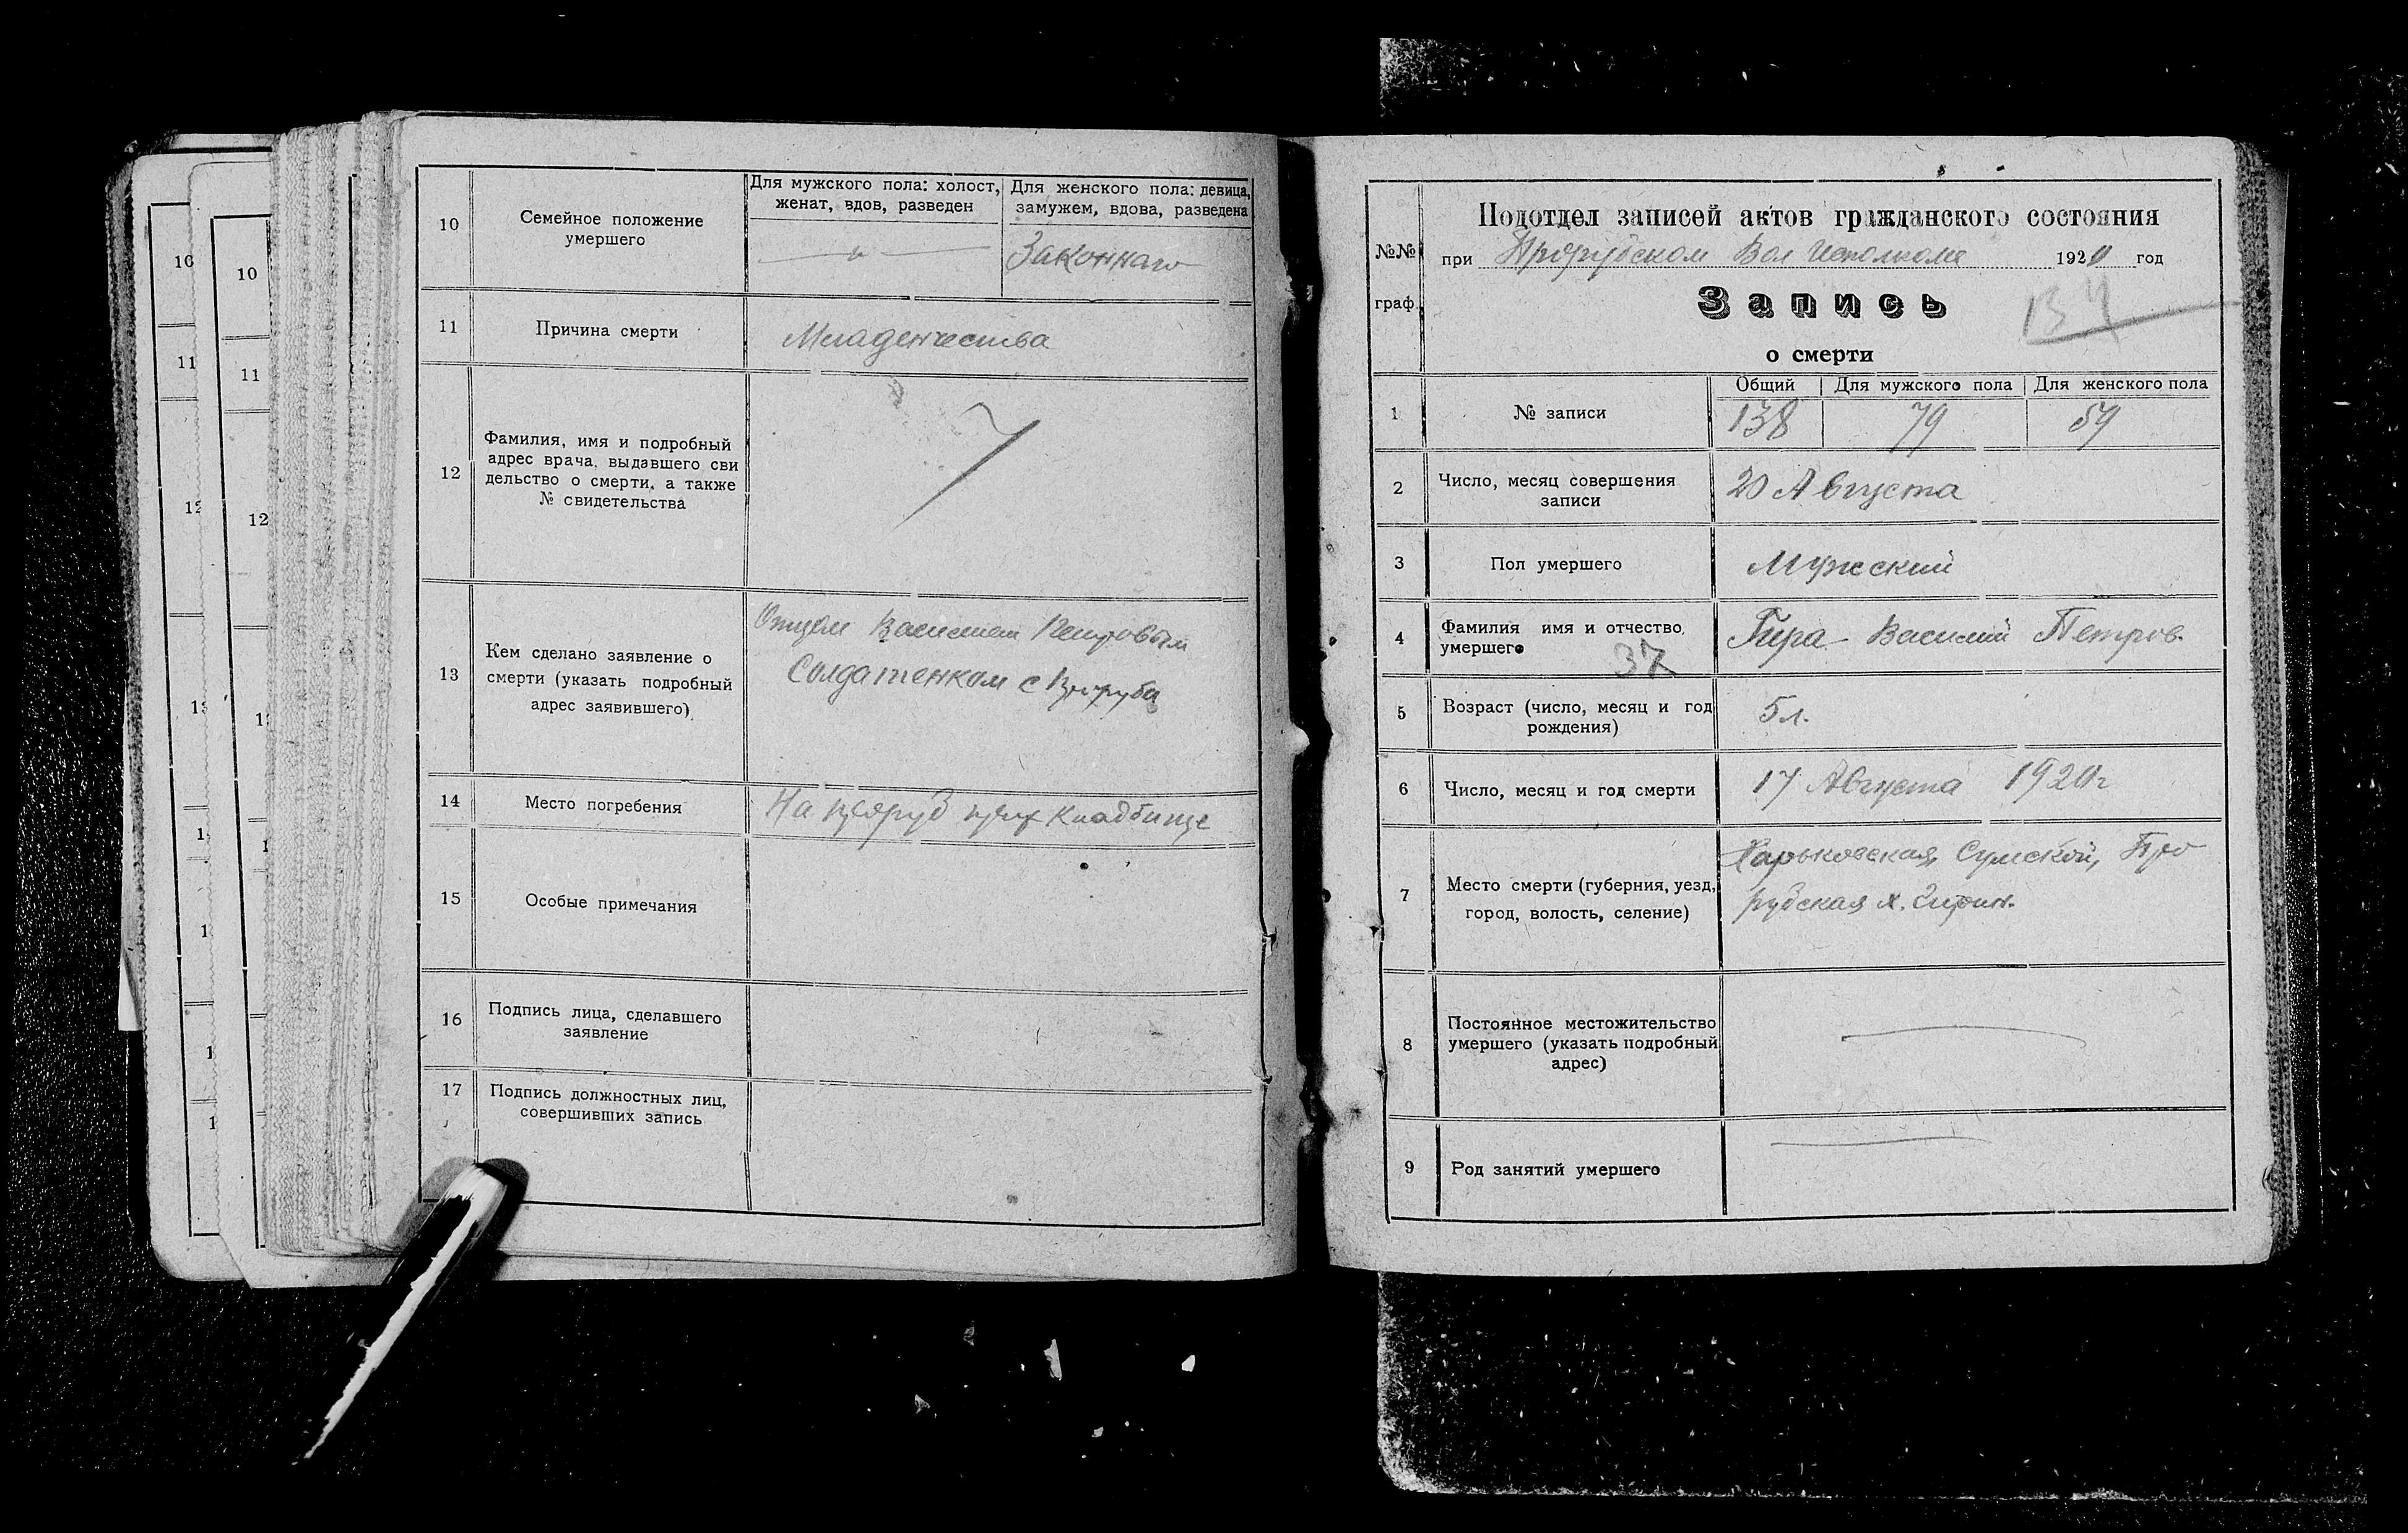 10
11
12
10
11
12
10
Семейное положение
умершего
Для мужского пола: холост,
женат, вдов, разведен
Для женского пола: девица,
замужем, вдова, разведена
Законнаго
11
Причина смерти
Младенчества
12
Фамилия, имя и подробный
адрес врача, выдавшего сви
дельство о смерти, а также
№ свидетельства
13
Кем сделано заявление о
смерти (указать подробный
адрес заявившего)
Отцем Василием Петровым
Солдатенком с
14
Место погребения
На кладбище
15
Особые примечания
16
Подпись лица, сделавшего
заявление
17
Подпись должностных лиц,
совершивших запись
№№
граф.
Подотдел записей актов гражданского состояния
при Прорубском Вол Исполкоме 1920 год
Запись
о смерти
1
№ записи
Общий
Для мужского пола
Для женского пола
138
79
59
2
Число, месяц совершения
записи
20 Августа
3
Пол умершего
Мужский
4
Фамилия имя и отчество
умершего
37
Гира Василий Петров.
5
Возраст (число, месяц и год
рождения)
5 л.
6
Число, месяц и год смерти
17 Августа 1920 г
7
Место смерти (губерния, уезд,
город, волость, селение)
Харьковская, Сумской, Про
рубская х.
8
Постоянное местожительство
умершего (указать подробный
адрес)
9
Род занятий умершего